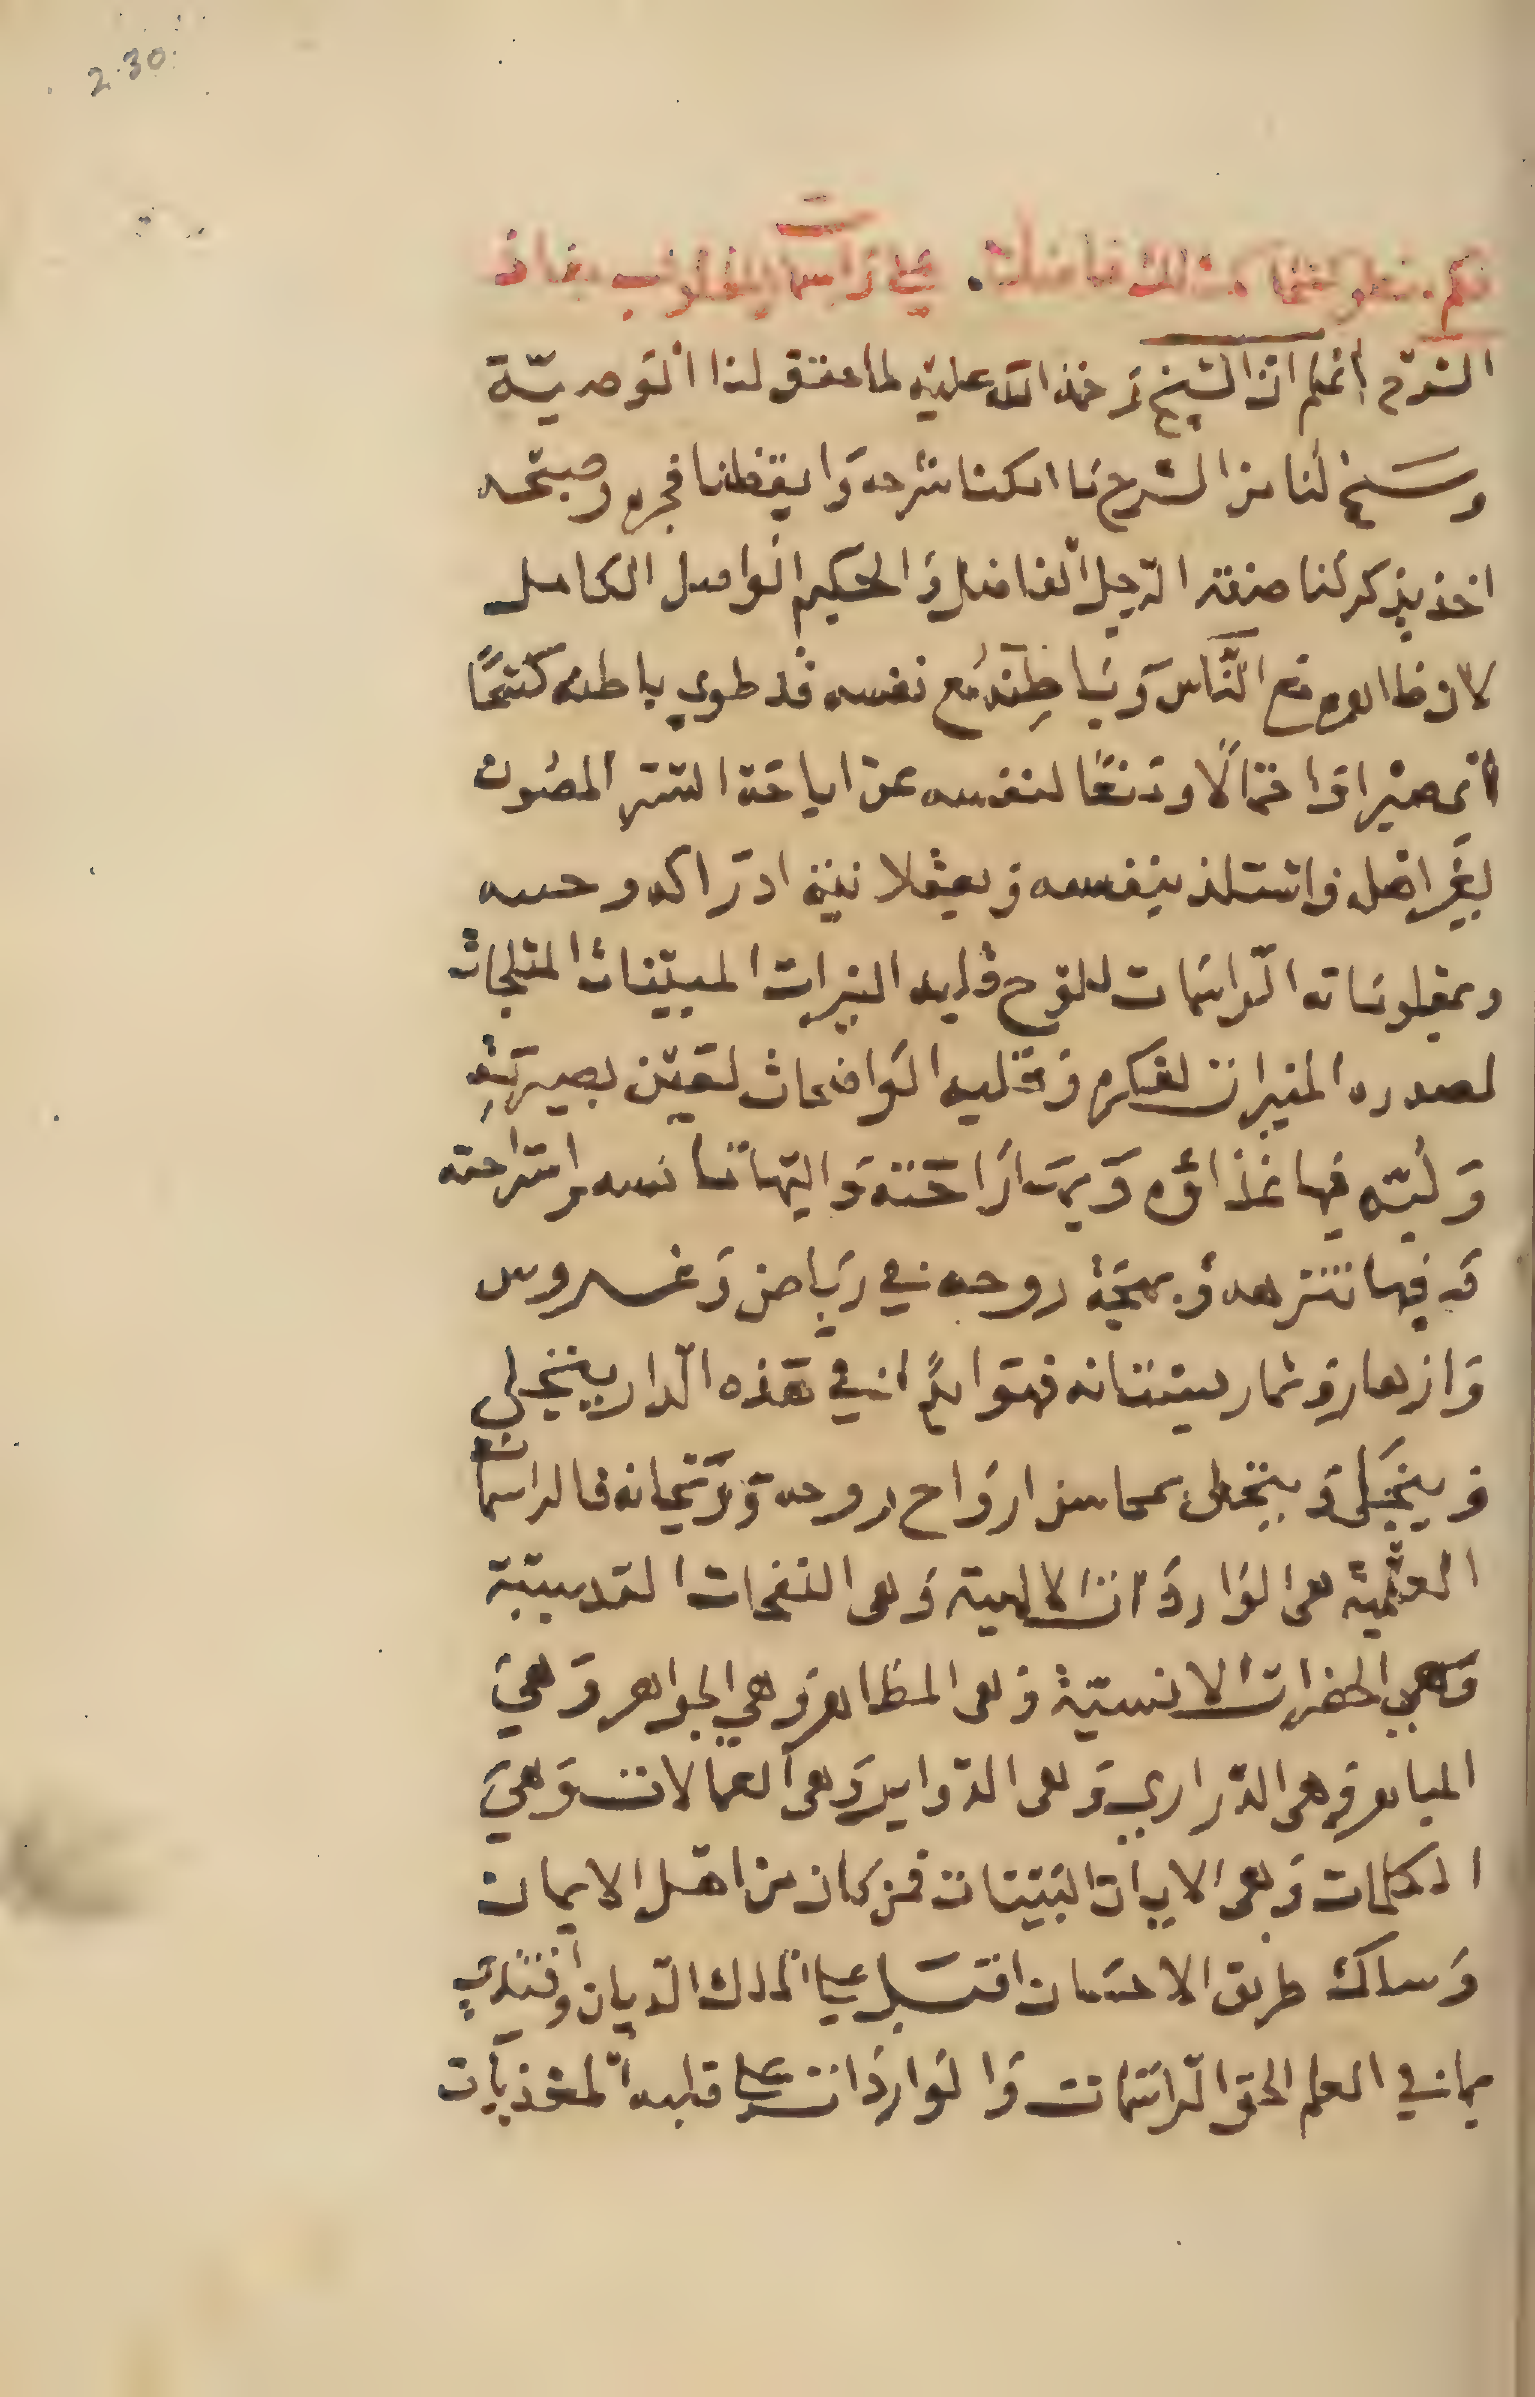 2.30
الشرح اعلم ان الشيخ رحمة الله عليه لما حقق لنا الوصية
وسنح لنا من الشرح ما امكننا شرحه وايقظنا فجره وصبحه
اخذ يذكر لنا صفة الرجل الفاضل والحكيم الواصل الكامل
لان ظاهره مع الناس وباطنه مع نفسه قد طوى باطنه كتمًا
لنفسه عن اباحة السر المصون
بغير اهله واستلذ بنفسه وبعقلانية ادراكه وحسه
وبمعلوماته الراسمات للوح قلبه النيرات المبينات المثلجات
لصدره المنيرات لفكره وقلبه الواضحات لعين بصيرته
وفيها غذاؤه وبها راحته واليها انسه واستراحته
وفيها تنزهه وبهجة روحه في رياض وغروس
وازهار وثمار بستانه فهو ابدًا في هذه الدار يتخلى
ويتجلى ويتحلى بمحاسن ارواح روحه وريحانه فالراسمات
العلمية هى الواردات الالهية وهى النفحات القدسية
وهي الحضرات الانسية وهى المظاهر وهي الجواهر وهي
المباهر وهى الدراري وهى الدواير وهى العمالات وهي
الكلمات وهى الايات البينات فمن كان من اهل الايمان
وسلك طريق الاحسان اقبل على الملك الديان واقتدى
بما في العلم الحق الراسمات والواردات على قلبه المغذيات